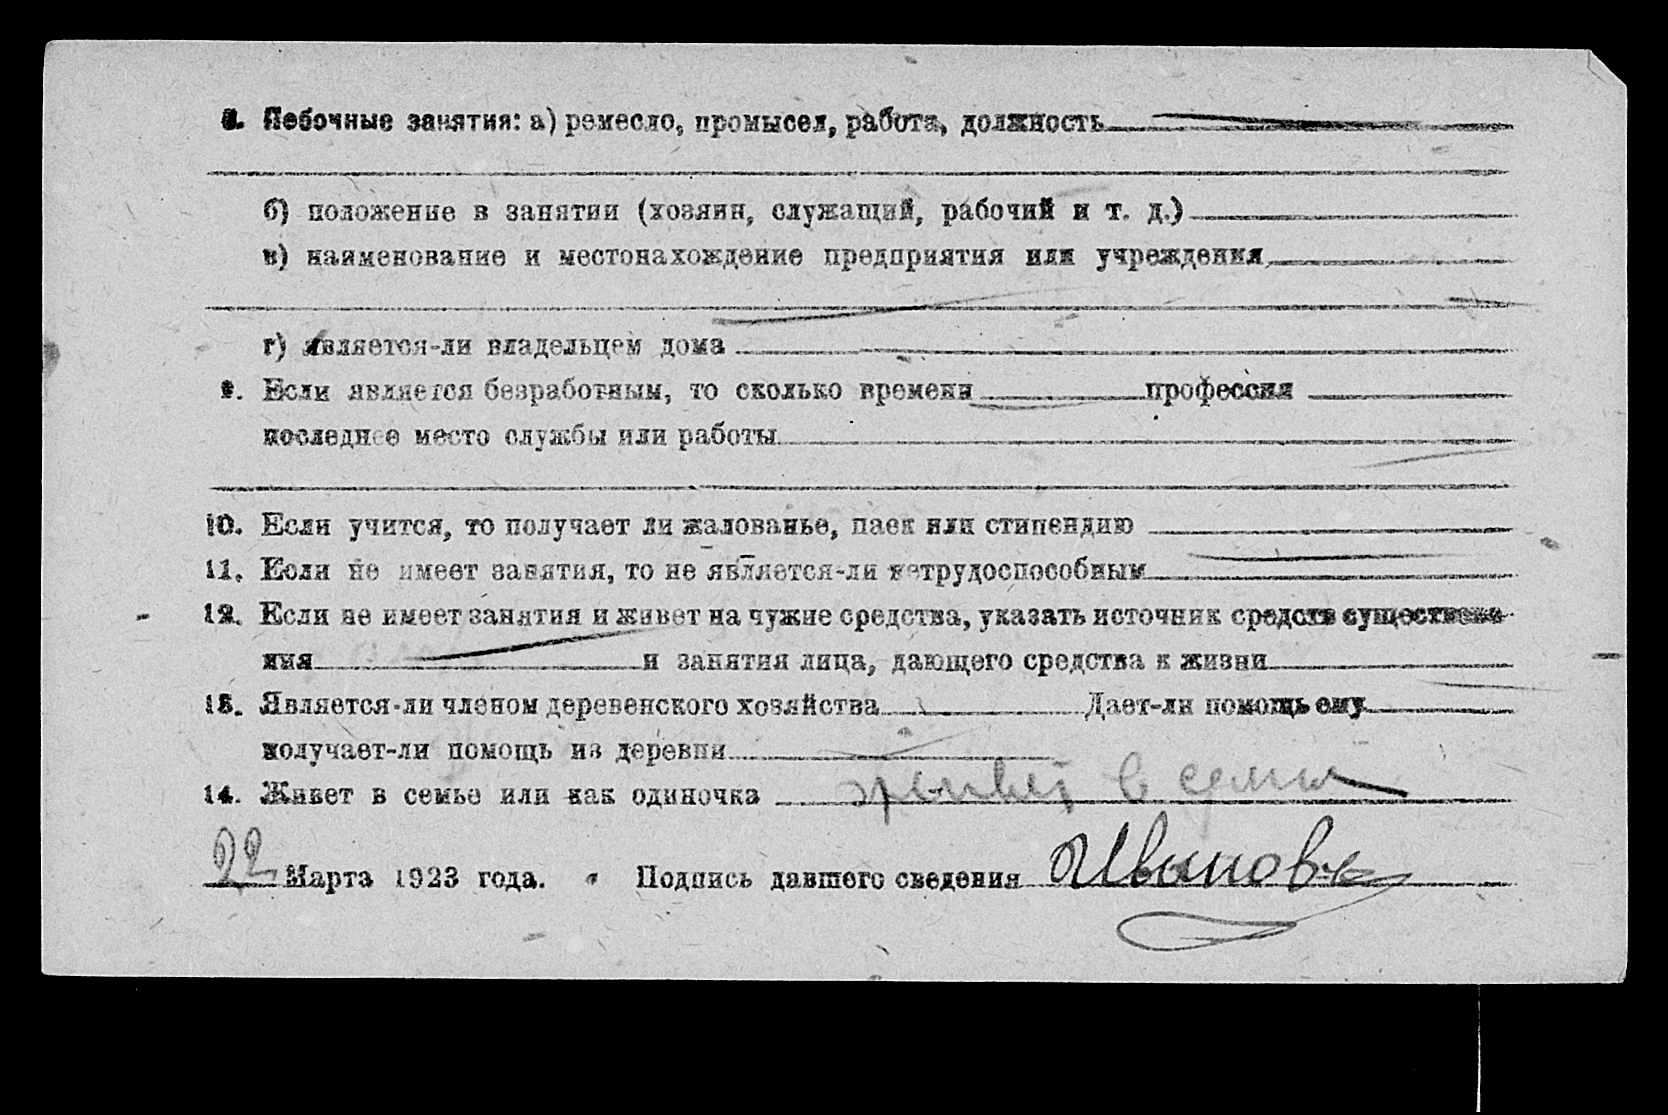 8. Побочные занятия: а) ремесло, промысел, работа, должность
б) положение в занятии (хозяин, служащий, рабочий и т. д.)
в) наименование и местонахождение предприятия или учреждения
г) является-ли владельцем дома
9. Если является безработным, то сколько времени профессия
последнее место службы или работы
10. Если учится, то получает ли жалованье, паек или стипендию
11. Если не имеет занятия, то не является-ли нетрудоспособным
12. Если не имеет занятия и живет на чужие средства, указать источник средств существова-
ния и занятия лица, дающего средства к жизни
13. Является-ли членом деревенского хозяйства Дает-ли помощь ему
получает-ли помощь из деревни
14. Живет в семье или как одиночка живет в семьи
22 Марта 1923 года. Подпись давшего сведения